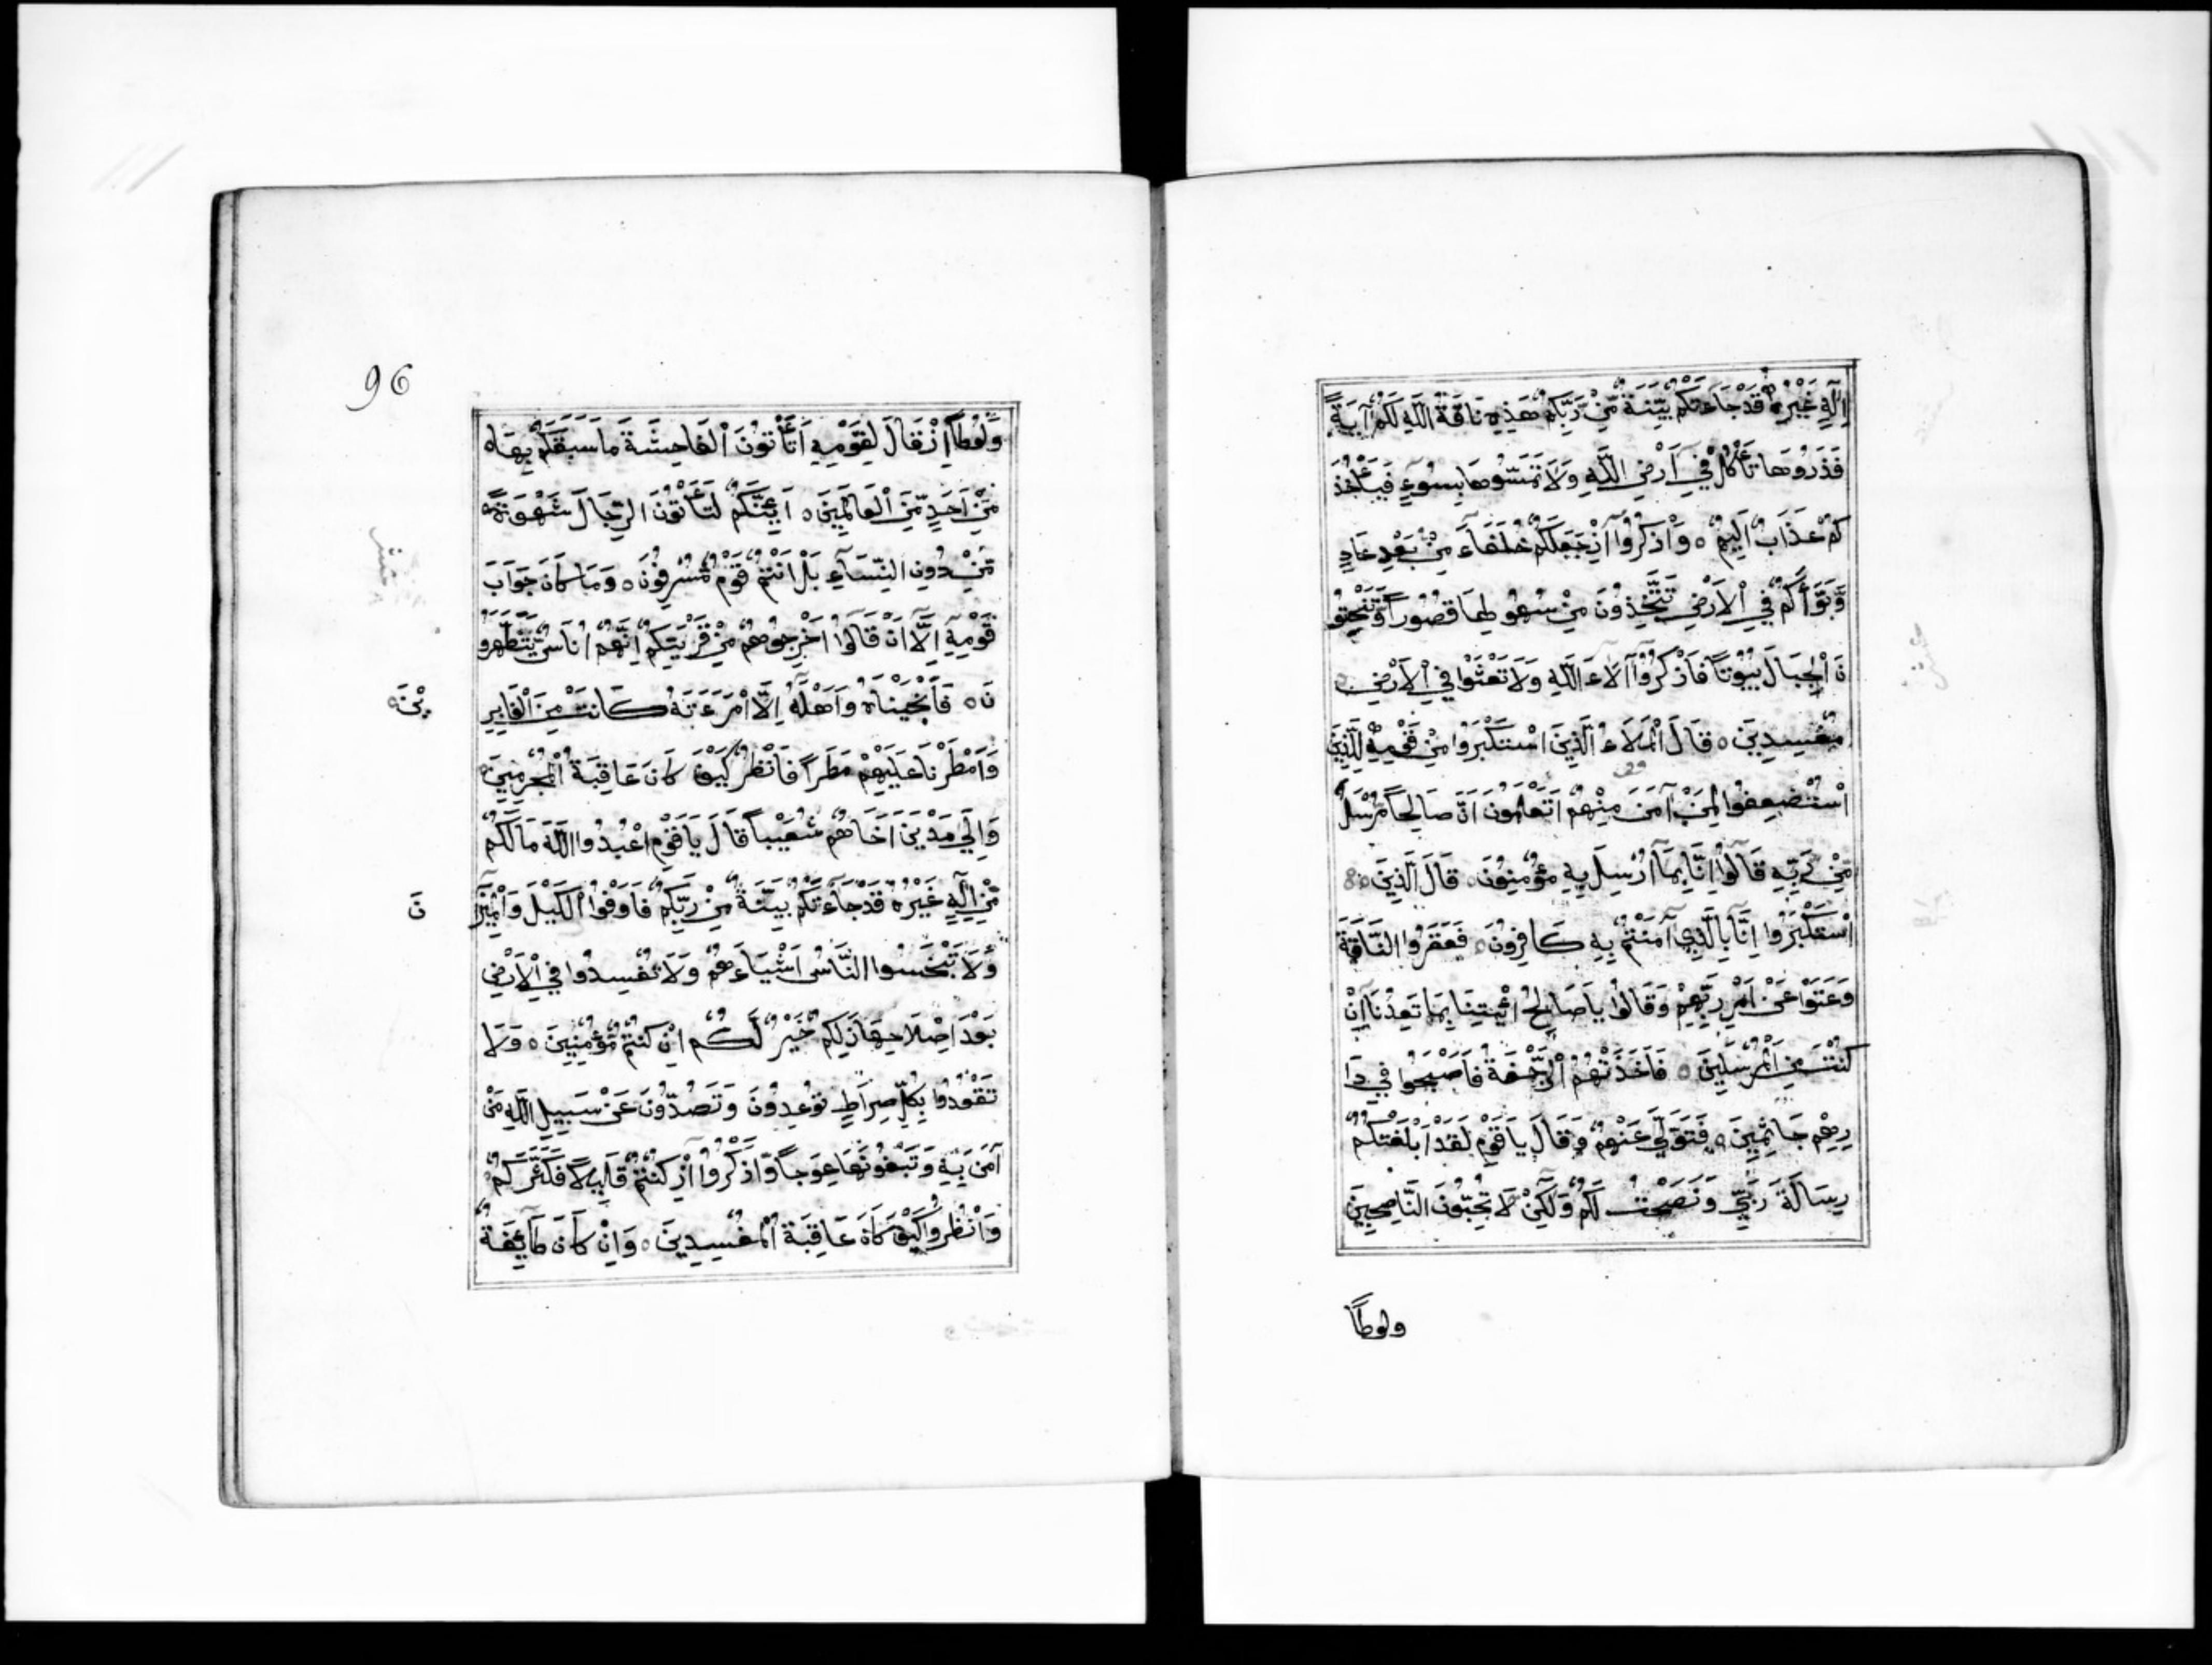 اِلٰهٍ غَيْرُهُ قَدْ جَاءَتْكُمْ بَيِّنَةٌ مِّنْ رَّبِّكُمْ هَذِهِ نَاقَةُ اللَّهِ لَكُمْ آيَةً
فَذَرُوهَا تَأْكُلْ فِي اَرْضِ اللَّهِ وَلَا تَمَسُّوهَا بِسُوءٍ فَيَأْخُذَ
كُمْ عَذَابٌ اَلِيمٌ ٥ وَاذْكُرُوا اِذْ جَعَلَكُمْ خُلَفَاءَ مِنْ بَعْدِ عَادٍ
وَّبَوَّأَكُمْ فِي الْاَرْضِ تَتَّخِذُونَ مِنْ سُهُولِهَا قُصُوراً وَّتَنْحِتُو
نَ الْجِبَالَ بُيُوتاً فَاذْكُرُوا آلَاءَ اللَّهِ وَلَا تَعْثَوْا فِي الْاَرْضِ
مُفْسِدِينَ ٥ قَالَ الْمَلَاءُ الَّذِينَ اسْتَكْبَرُوا مِنْ قَوْمِهِ لِلَّذِينَ
اسْتُضْعِفُوا لِمَنْ آمَنَ مِنْهُمْ اَتَعْلَمُونَ اَنَّ صَالِحاً مُّرْسَلٌ
مِّنْ رَّبِّهِ قَالُوا اِنَّا بِمَا اُرْسِلَ بِهِ مُؤْمِنُونَ ٥ قَالَ الَّذِينَ
اسْتَكْبَرُوا اِنَّا بِالَّذِي آمَنْتُمْ بِهِ كَافِرُونَ ٥ فَعَقَرُوا النَّاقَةَ
وَعَتَوْا عَنْ اَمْرِ رَبِّهِمْ وَقَالُوا يَا صَالِحُ ائْتِنَا بِمَا تَعِدُنَا اِنْ
كُنْتَ مِنَ الْمُرْسَلِينَ ٥ فَاَخَذَتْهُمُ الرَّجْفَةُ فَاَصْبَحُوا فِي دَا
رِهِمْ جَاثِمِينَ ٥ فَتَوَلَّى عَنْهُمْ وَقَالَ يَا قَوْمِ لَقَدْ اَبْلَغْتُكُمْ
رِسَالَةَ رَبِّي وَنَصَحْتُ لَكُمْ وَلَكِنْ لَا تُحِبُّونَ النَّاصِحِينَ
ولوطاً
96
وَلُوطاً اِذْ قَالَ لِقَوْمِهِ اَتَأْتُونَ الْفَاحِشَةَ مَا سَبَقَكُمْ بِهَا
مِنْ اَحَدٍ مِّنَ الْعَالَمِينَ ٥ اَئِنَّكُمْ لَتَأْتُونَ الرِّجَالَ شَهْوَةً
مِّنْ دُونِ النِّسَاءِ بَلْ اَنْتُمْ قَوْمٌ مُّسْرِفُونَ ٥ وَمَا كَانَ جَوَابَ
قَوْمِهِ اِلَّا اَنْ قَالُوا اَخْرِجُوهُمْ مِنْ قَرْيَتِكُمْ اِنَّهُمْ اُنَاسٌ يَّتَطَهَّرُو
نَ ٥ فَاَنْجَيْنَاهُ وَاَهْلَهُ اِلَّا امْرَءَتَهُ كَانَتْ مِنَ الْغَابِرِ
يْنَ ٥
وَاَمْطَرْنَا عَلَيْهِمْ مَطَراً فَانْظُرْ كَيْفَ كَانَ عَاقِبَةُ الْمُجْرِمِينَ
وَاِلَى مَدْيَنَ اَخَاهُمْ شُعَيْباً قَالَ يَا قَوْمِ اعْبُدُوا اللَّهَ مَا لَكُمْ
مِّنْ اِلٰهٍ غَيْرُهُ قَدْ جَاءَتْكُمْ بَيِّنَةٌ مِنْ رَبِّكُمْ فَاَوْفُوا الْكَيْلَ وَالْمِيْزَا
نَ
وَلَا تَبْخَسُوا النَّاسَ اَشْيَاءَهُمْ وَلَا تُفْسِدُوا فِي الْاَرْضِ
بَعْدَ اِصْلَاحِهَا ذَلِكُمْ خَيْرٌ لَّكُمْ اِنْ كُنْتُمْ مُّؤْمِنِينَ ٥ وَلَا
تَقْعُدُوا بِكُلِّ صِرَاطٍ تُوعِدُونَ وَتَصُدُّونَ عَنْ سَبِيلِ اللَّهِ مَنْ
آمَنَ بِهِ وَتَبْغُونَهَا عِوَجاً وَّاذْكُرُوا اِذْ كُنْتُمْ قَلِيلًا فَكَثَّرَكُمْ
وَانْظُرُوا كَيْفَ كَانَ عَاقِبَةُ الْمُفْسِدِينَ ٥ وَاِنْ كَانَ طَائِفَةٌ